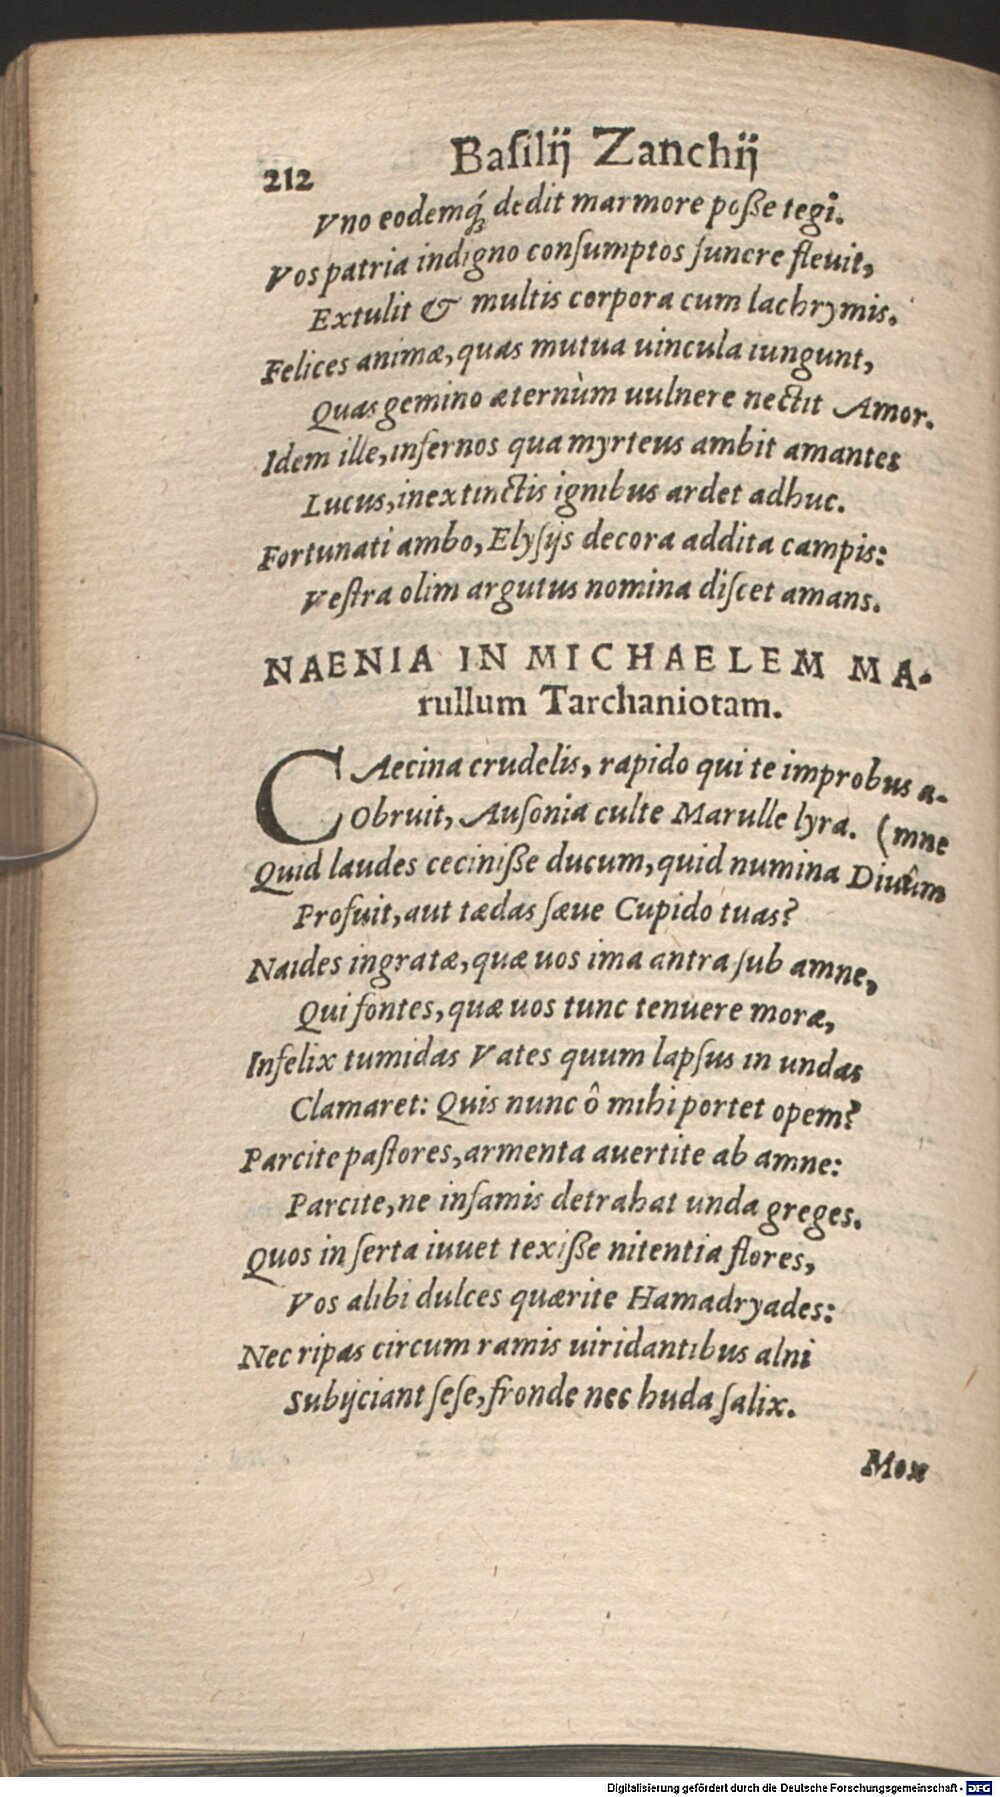 212
Baſilij Zanchij
Vno eodemq́; dedit marmore poſſe tegi.
Vos patria indigno conſumptos funere fleuit,
Extulit & multis corpora cum lachrymis.
Felices animæ, quas mutua uincula iungunt,
Quas gemino æternùm uulnere nectit Amor.
Idem ille, infernos qua myrteus ambit amantes
Lucus, inextinctis ignibus ardet adhuc.
Fortunati ambo, Elyſijs decora addita campis:
Veſtra olim argutus nomina diſcet amans.
NAENIA IN MICHAELEM MA-
rullum Tarchaniotam.
CAecina crudelis, rapido qui te improbus a-
Obruit, Auſonia culte Marulle lyra. (mne
Quid laudes ceciniſſe ducum, quid numina Diuûm
Profuit, aut tædas ſæue Cupido tuas?
Naides ingratæ, quæ uos ima antra ſub amne,
Qui fontes, quæ uos tunc tenuere moræ,
Infelix tumidas Vates quum lapſus in undas
Clamaret: Quis nunc ô mihi portet opem?
Parcite paſtores, armenta auertite ab amne:
Parcite, ne infamis detrahat unda greges.
Quos in ſerta iuuet texiſſe nitentia flores,
Vos alibi dulces quærite Hamadryades:
Nec ripas circum ramis uiridantibus alni
Subijciant ſeſe, fronde nec huda ſalix.
Mox
Digitalisierung gefördert durch die Deutsche Forschungsgemeinschaft - DFG